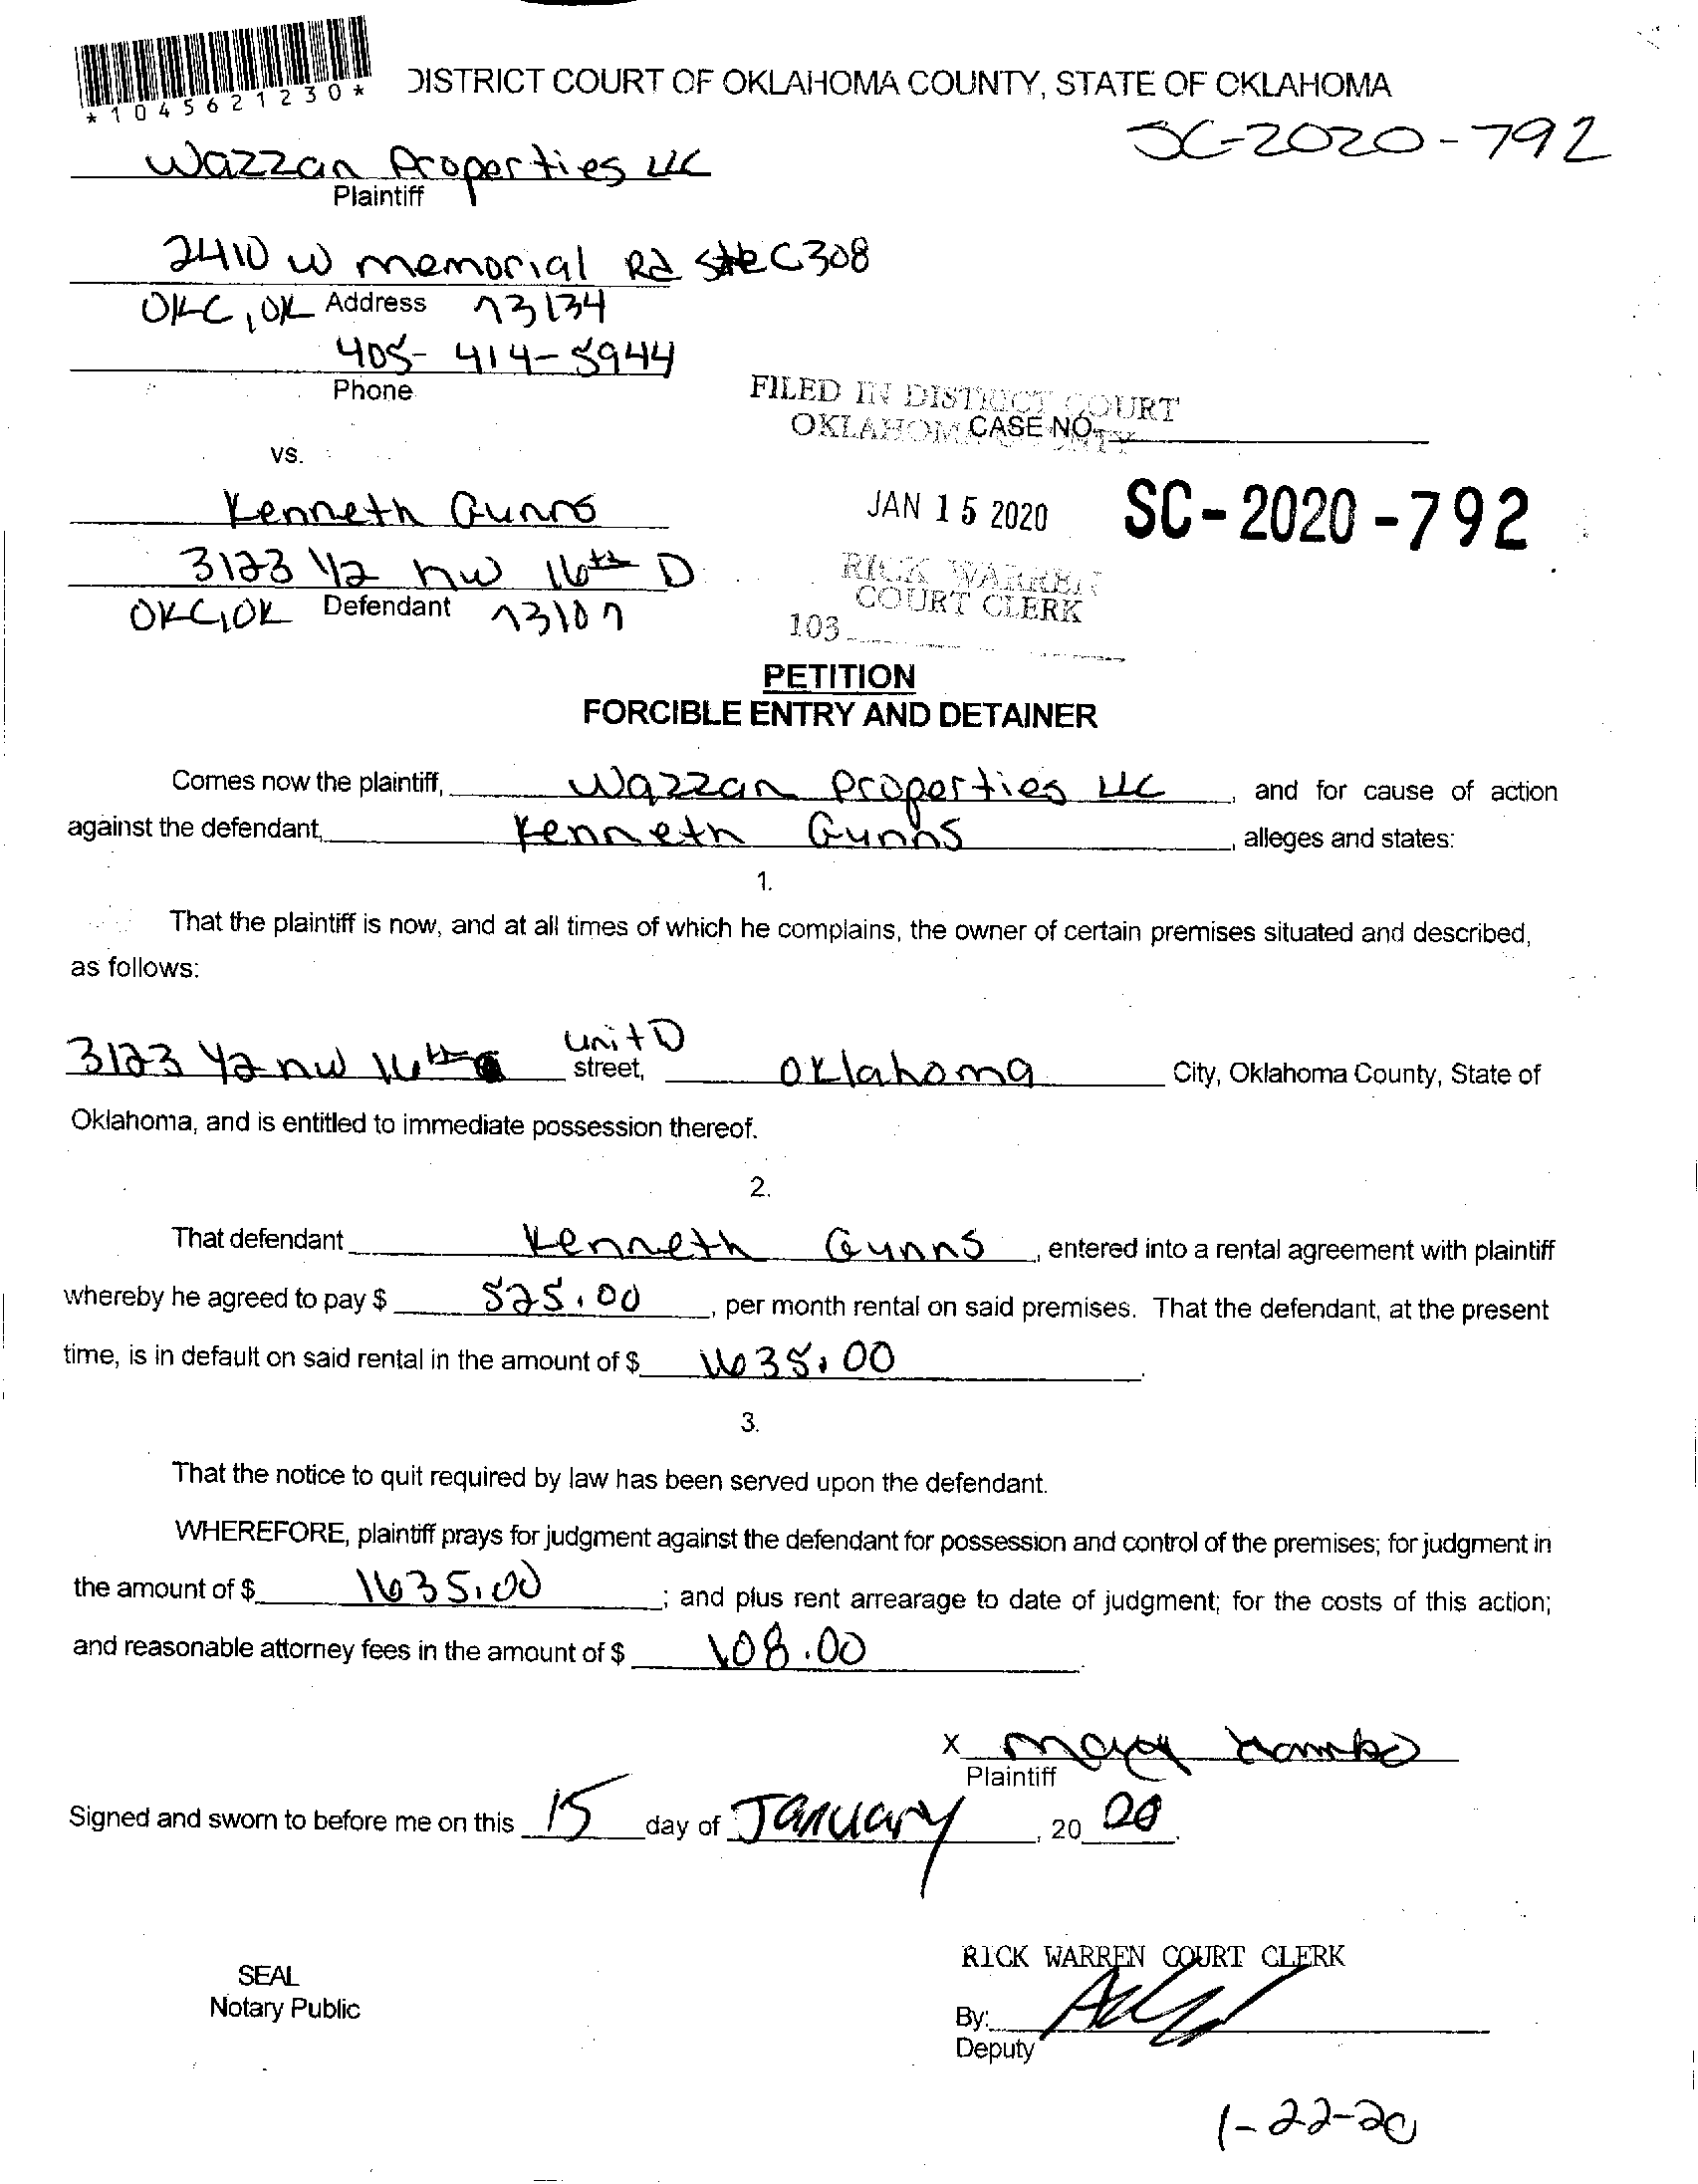 *1045621230*
DISTRICT COURT OF OKLAHOMA COUNTY, STATE OF OKLAHOMA
SC-2020-792
Wazzan Properties LLC
Plaintiff
2410 W memorial Rd Ste C308
OKC, OK Address 73134
405-414-5944
Phone
FILED IN DISTRICT COURT
OKLAHOMA COUNTY
CASE NO.
vs.
Kenneth Gunns
JAN 15 2020
SC-2020-792
3123 1/2 nw 16th D
RICK WARREN
COURT CLERK
OKC, OK Defendant 73107
103
PETITION
FORCIBLE ENTRY AND DETAINER
Comes now the plaintiff, Wazzan Properties LLC, and for cause of action
against the defendant, Kenneth Gunns, alleges and states:
1.
That the plaintiff is now, and at all times of which he complains, the owner of certain premises situated and described,
as follows:
3123 1/2 nw 16th unit D street, Oklahoma City, Oklahoma County, State of
Oklahoma, and is entitled to immediate possession thereof.
2.
That defendant Kenneth Gunns, entered into a rental agreement with plaintiff
whereby he agreed to pay $ 525.00, per month rental on said premises. That the defendant, at the present
time, is in default on said rental in the amount of $ 1635.00.
3.
That the notice to quit required by law has been served upon the defendant.
WHEREFORE, plaintiff prays for judgment against the defendant for possession and control of the premises; for judgment in
the amount of $ 1635.00; and plus rent arrearage to date of judgment; for the costs of this action;
and reasonable attorney fees in the amount of $ 108.00.
X
Plaintiff
Signed and sworn to before me on this 15 day of January, 20 20.
RICK WARREN COURT CLERK
SEAL
Notary Public
By:
Deputy
1-22-20